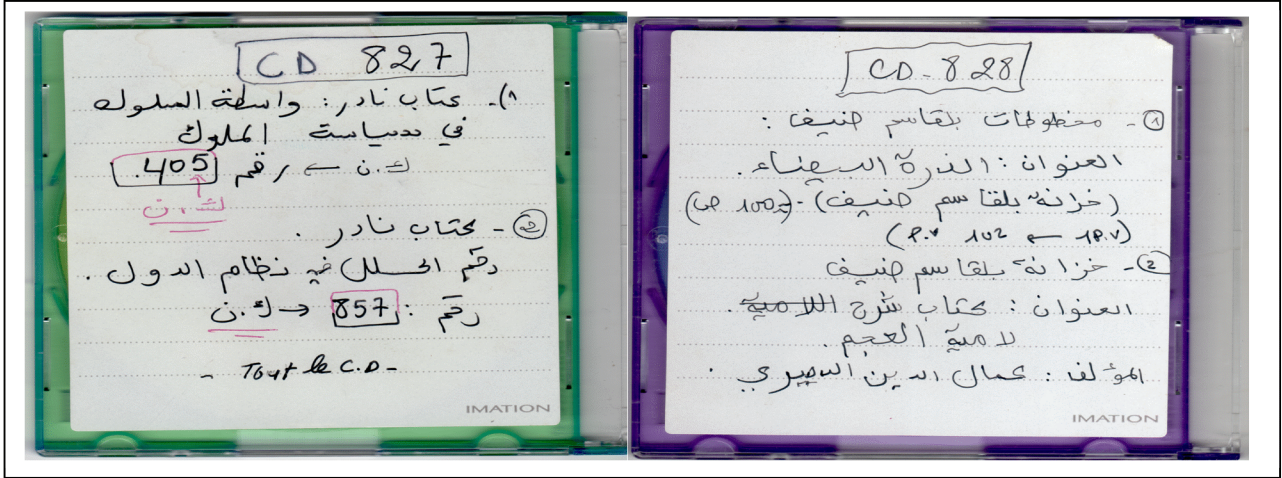 CD 827
1)- كتاب نادر: واسطة السلوك
في سياسة الملوك
ك.ن ← رقم 405.
ك.ن
2 - كتاب نادر.
رقم الحلل في نظام الدول.
رقم: 857 → ك.ن
- Tout le C.D -
IMATION
CD-828
1 - مخطوطات بلقاسم ضيف:
العنوان: الذرة البيضاء.
(خزانة بلقاسم ضيف) - (100 ص)
(1P.V ← 102 P.V)
2 - خزانة بلقاسم ضيف
العنوان: كتاب شرح اللامية.
لامية العجم.
المؤلف: كمال الدين الدميري.
IMATION